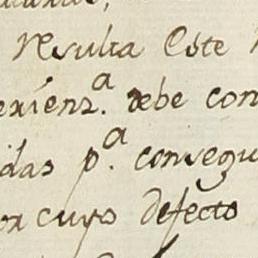 resulta Este
erienz.ª debe con
idas p.ª consegu
or cuyo defecto